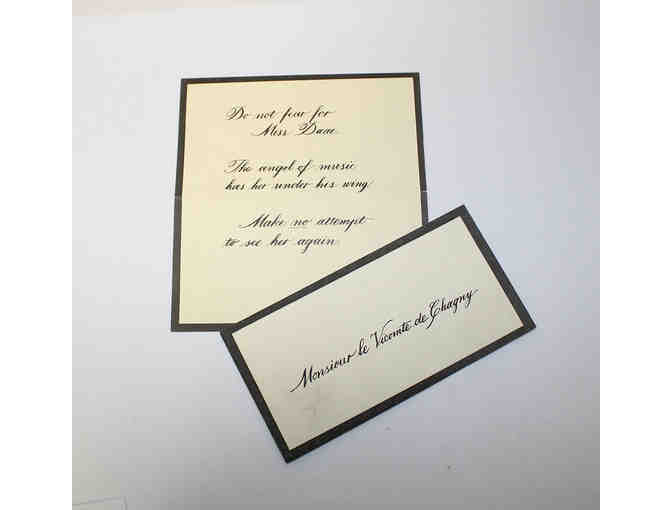 Do not fear for
Miss Daae.
The angel of music
has her under his wing
Make no attempt
to see her again.
Monsieur le Vicomte de Chagny